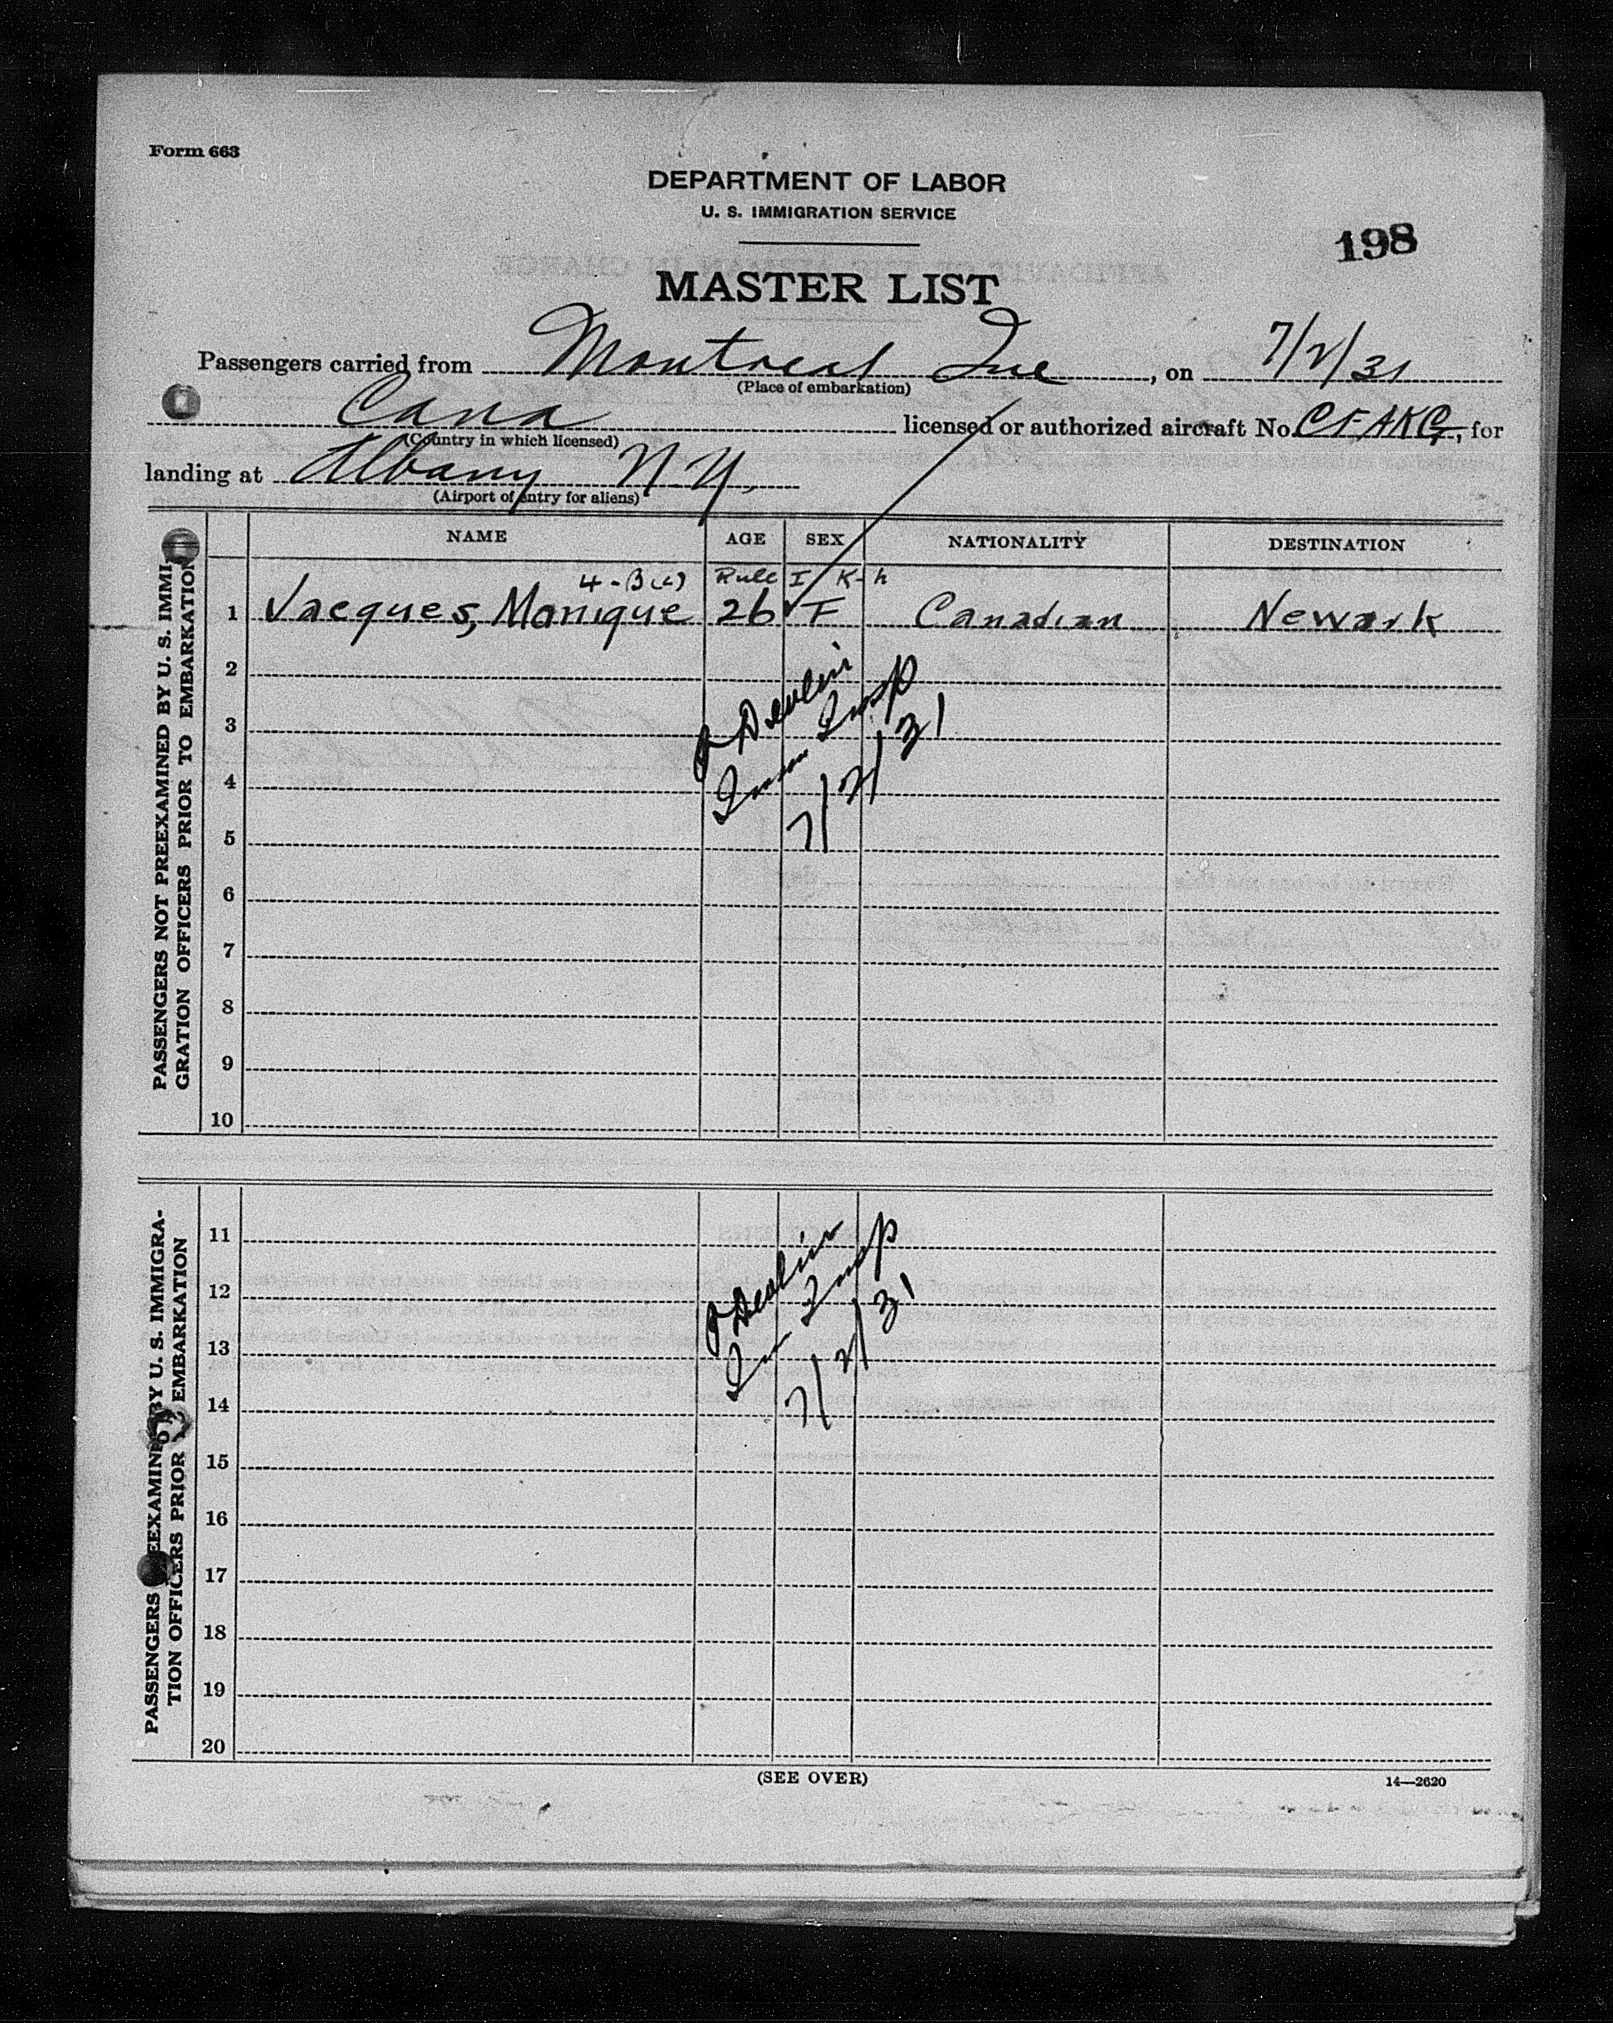 Form 663
DEPARTMENT OF LABOR
U. S. IMMIGRATION SERVICE
198
MASTER LIST
Passengers carried from Montreal Que, on 7/2/31
(Place of embarkation)
Cana licensed or authorized aircraft No. CF-AKG, for
(Country in which licensed)
landing at Albany N.Y.
(Airport of entry for aliens)
NAME AGE SEX NATIONALITY DESTINATION
4-B(c) Rule I K-h
1 Jacques, Monique 26 F Canadian Newark
2
3
4
5
6
7
8
9
10
Devlin
Imm Insp
7/2/31
PASSENGERS NOT PREEXAMINED BY U. S. IMMI
GRATION OFFICERS PRIOR TO EMBARKATION
11
12
13
14
15
16
17
18
19
20
Devlin
Imm Insp
7/2/31
PASSENGERS EEXAMINED BY U. S. IMMIGRA-
TION OFFICERS PRIOR EMBARKATION
(SEE OVER)
14—2620